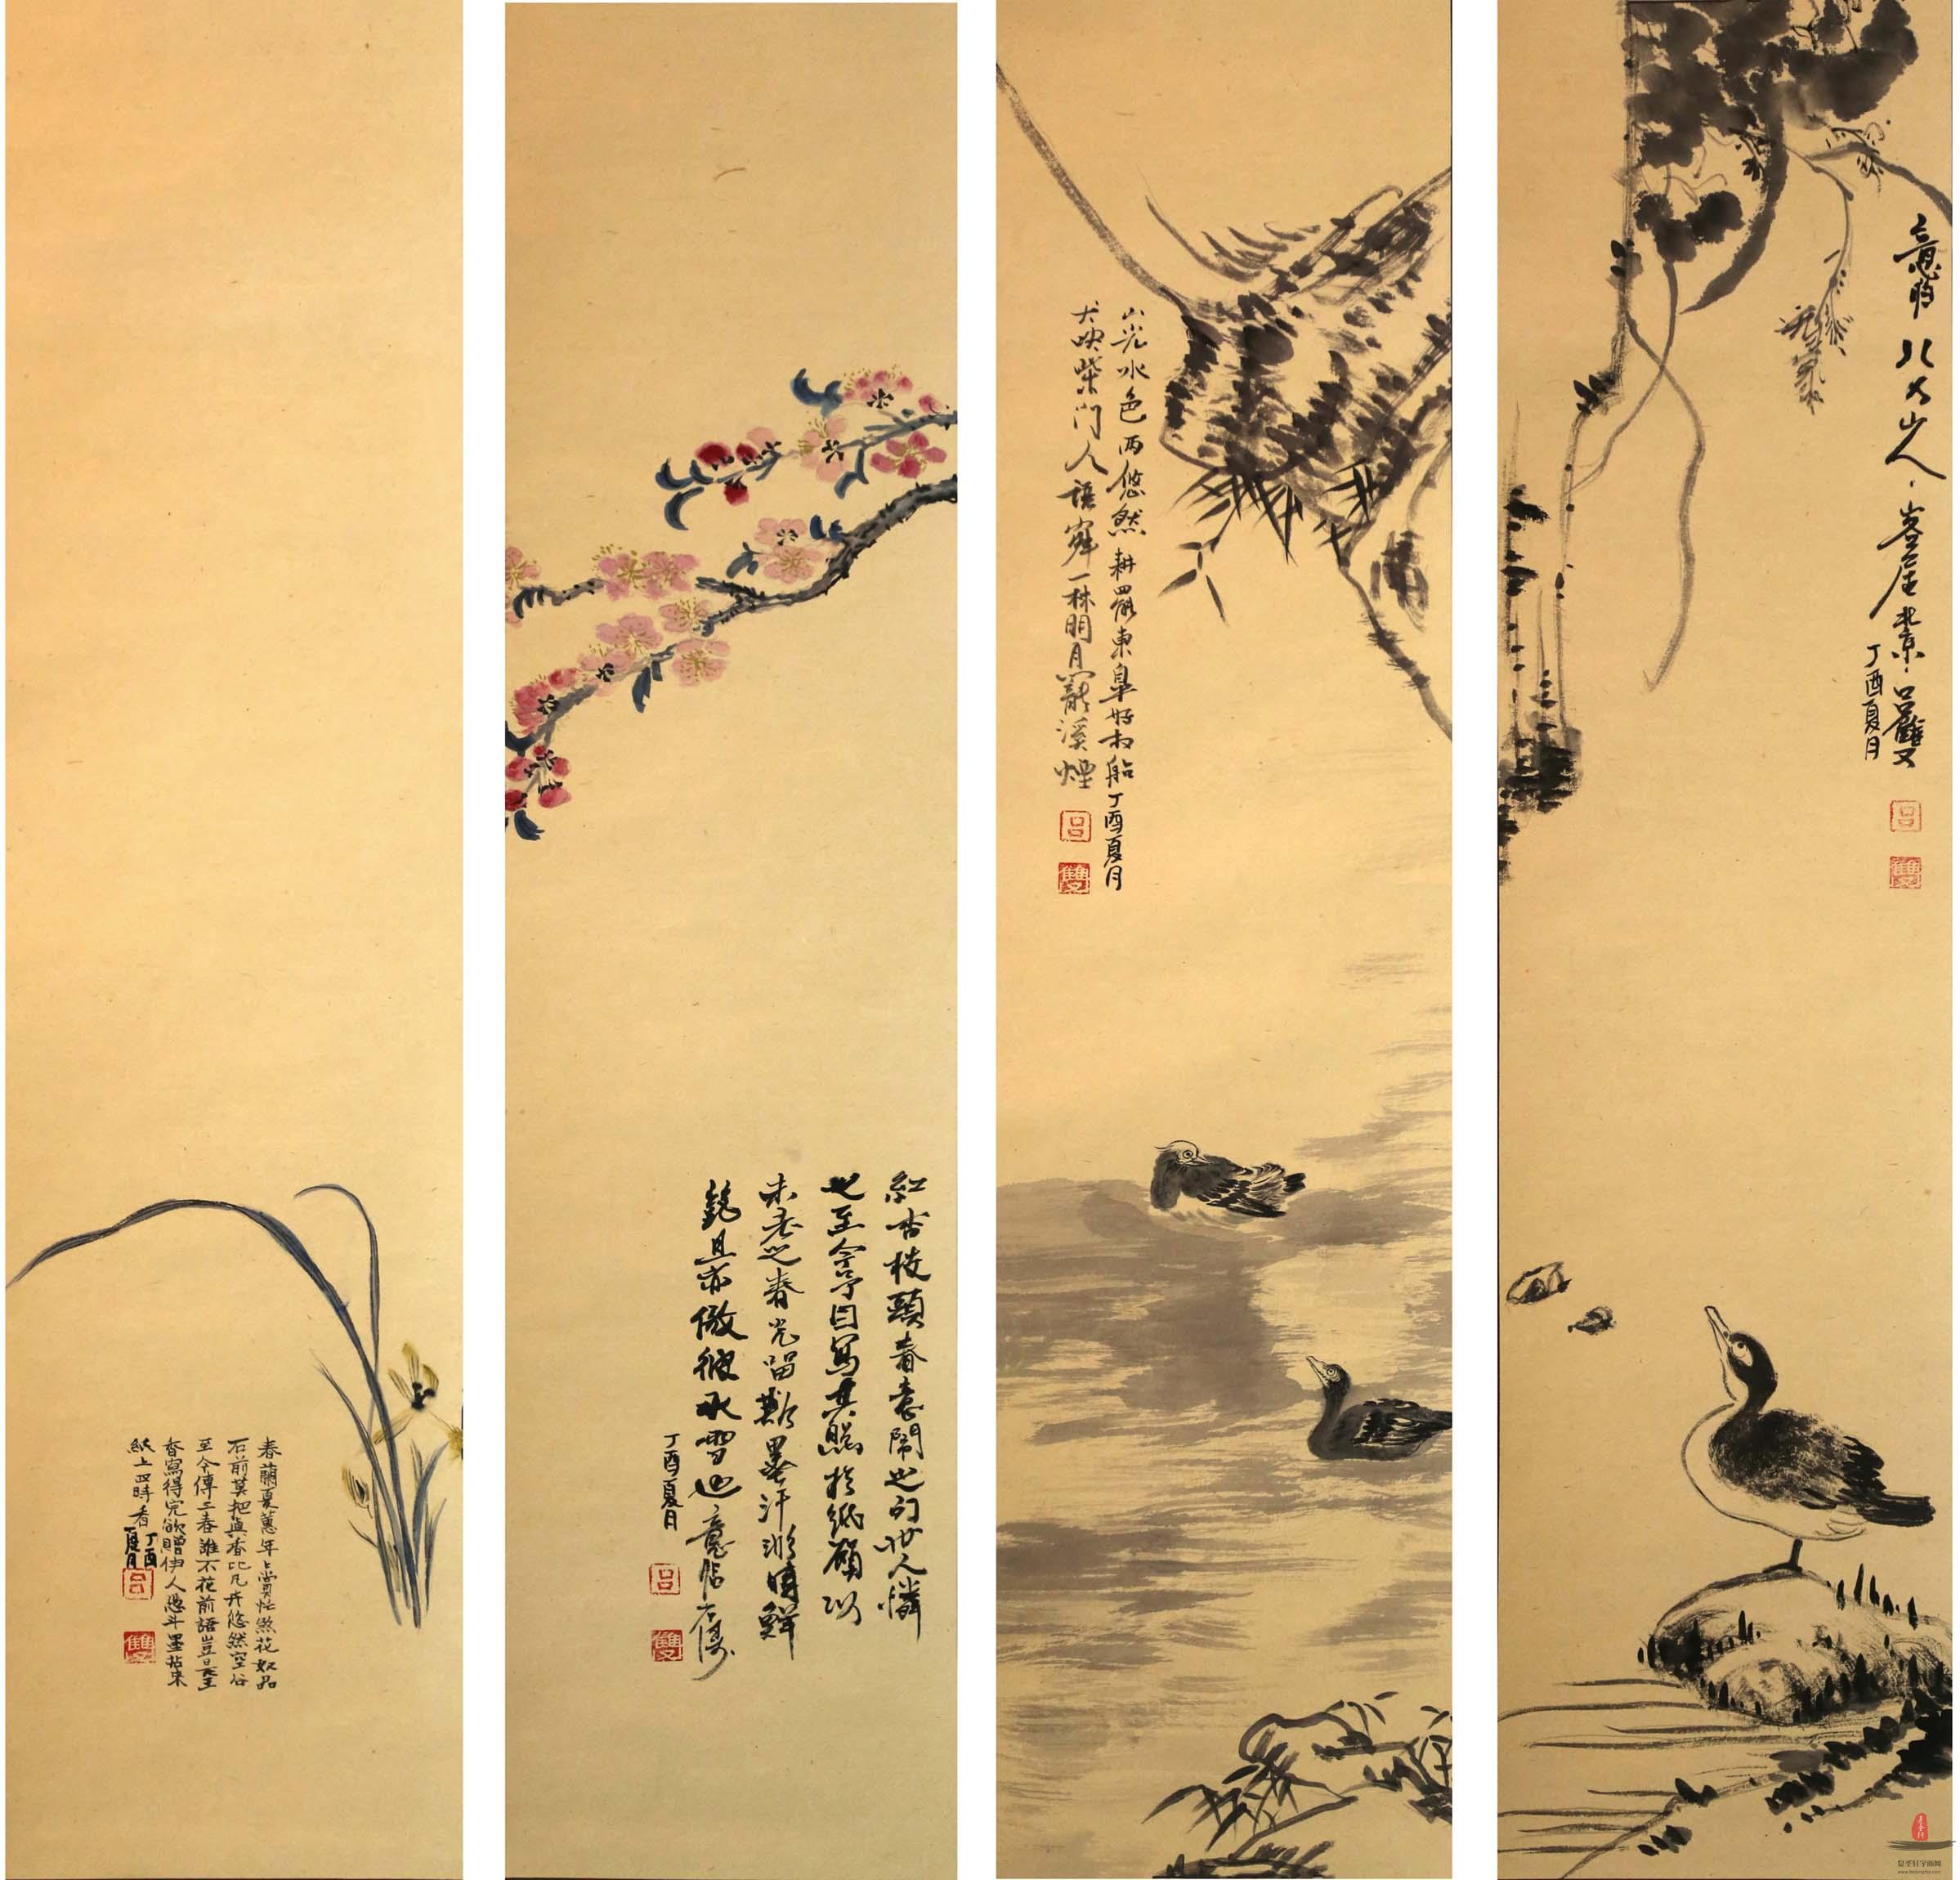 春蘭夏蕙年年賞忙煞花奴品
石前莫把與香比凡卉悠然空谷
至今傳二春誰不花前語豈是王
香寫得完欲贈伊人憑斗墨拈來
紙上四時香
丁酉
夏月
紅杏枝頭春意鬧也句世人憐
之至今予因寫其態於紙願以
未老之春光留斯墨汗漸時鮮
豔且亦傲彼冰雪也意臨石濤
丁酉夏月
呂
雙
山光水色兩悠然耕罷東皋好放船
犬吠柴門人語寂一林明月罷溪煙
丁酉夏月
呂
雙
意臨八大山人
崟崖北京呂雙
丁酉夏月
呂
雙